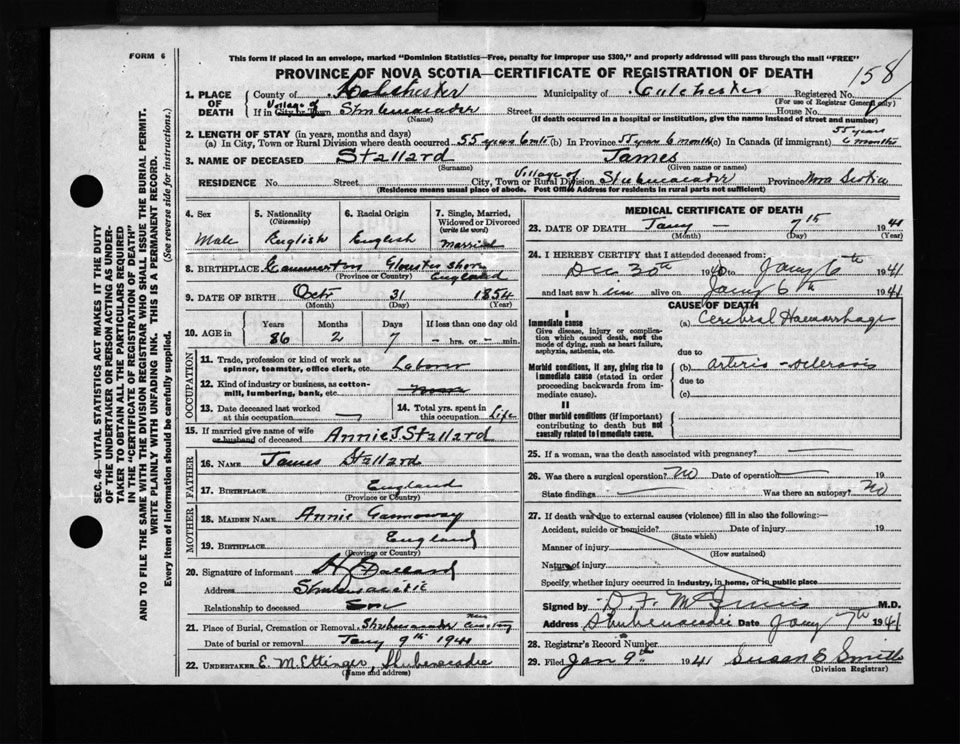 FORM 6
This form if placed in an envelope, marked "Dominion Statistics—Free, penalty for improper use $300," and properly addressed will pass through the mail "FREE"
PROVINCE OF NOVA SCOTIA—CERTIFICATE OF REGISTRATION OF DEATH
158
1. PLACE OF DEATH
County of Colchester Municipality of Colchester Registered No.
(For use of Registrar General only)
If in City or Town Village of Shubenacadie Street House No.
(Name) (If death occurred in a hospital or institution, give the name instead of street and number)
2. LENGTH OF STAY (in years, months and days)
(a) In City, Town or Rural Division where death occurred 55 years 6 mnts (b) In Province 55 years 6 months (c) In Canada (if immigrant) 55 years 6 months
3. NAME OF DECEASED Stallard James
(Surname) (Given name or names)
RESIDENCE No. Street City, Town or Rural Division Village of Shubenacadie Province Nova Scotia
(Residence means usual place of abode. Post Office Address for residents in rural parts not sufficient)
4. Sex Male
5. Nationality (Citizenship) English
6. Racial Origin English
7. Single, Married, Widowed or Divorced (write the word) Married
8. BIRTHPLACE England
(Province or Country)
9. DATE OF BIRTH Oct 31 1854
(Month) (Day) (Year)
10. AGE in Years Months Days If less than one day old
86 2 7 – hrs. or – min.
OCCUPATION
11. Trade, profession or kind of work as spinner, teamster, office clerk, etc. Laborer
12. Kind of industry or business, as cotton-mill, lumbering, bank, etc.
13. Date deceased last worked at this occupation —
14. Total yrs. spent in this occupation Life
15. If married give name of wife or husband of deceased Annie J. Stallard
FATHER
16. NAME James Stallard
17. BIRTHPLACE England
(Province or Country)
MOTHER
18. MAIDEN NAME Annie Gannoway
19. BIRTHPLACE England
(Province or Country)
20. Signature of informant Stallard
Address Shubenacadie
Relationship to deceased Son
21. Place of Burial, Cremation or Removal Shubenacadie
Date of burial or removal Jany 9th 1941
22. UNDERTAKER E. M. Ettinger, Shubenacadie
(Name and address)
MEDICAL CERTIFICATE OF DEATH
23. DATE OF DEATH Jany — 7th 1941
(Month) (Day) (Year)
24. I HEREBY CERTIFY that I attended deceased from:
Dec 30th 1940 to Jany 6th 1941
and last saw h im alive on Jany 6th 1941
CAUSE OF DEATH
I
Immediate cause
Give disease, injury or complication which caused death, not the mode of dying, such as heart failure, asphyxia, asthenia, etc.
(a) Cerebral Haemorrhage
due to
Morbid conditions, if any, giving rise to immediate cause (stated in order proceeding backwards from immediate cause).
(b) Arterio-sclerosis
due to
(c)
II
Other morbid conditions (if important) contributing to death but not causally related to immediate cause.
25. If a woman, was the death associated with pregnancy? —
26. Was there a surgical operation? No Date of operation — 19
State findings — Was there an autopsy? No
27. If death was due to external causes (violence) fill in also the following:—
Accident, suicide or homicide? Date of injury 19
(State which)
Manner of injury
(How sustained)
Nature of injury
Specify whether injury occurred in industry, in home, or in public place
Signed by D. F. McInnis M.D.
Address Shubenacadie Date Jany 7th 1941
28. Registrar's Record Number
29. Filed Jan 9th 1941 Susan E Smith
(Division Registrar)
SEC. 46—VITAL STATISTICS ACT MAKES IT THE DUTY
OF THE UNDERTAKER OR PERSON ACTING AS UNDER-
TAKER TO OBTAIN ALL THE PARTICULARS REQUIRED
IN THE "CERTIFICATE OF REGISTRATION OF DEATH"
AND TO FILE THE SAME WITH THE DIVISION REGISTRAR WHO SHALL ISSUE THE BURIAL PERMIT.
WRITE PLAINLY WITH UNFADING INK. THIS IS A PERMANENT RECORD.
Every item of information should be carefully supplied. (See reverse side for instructions.)